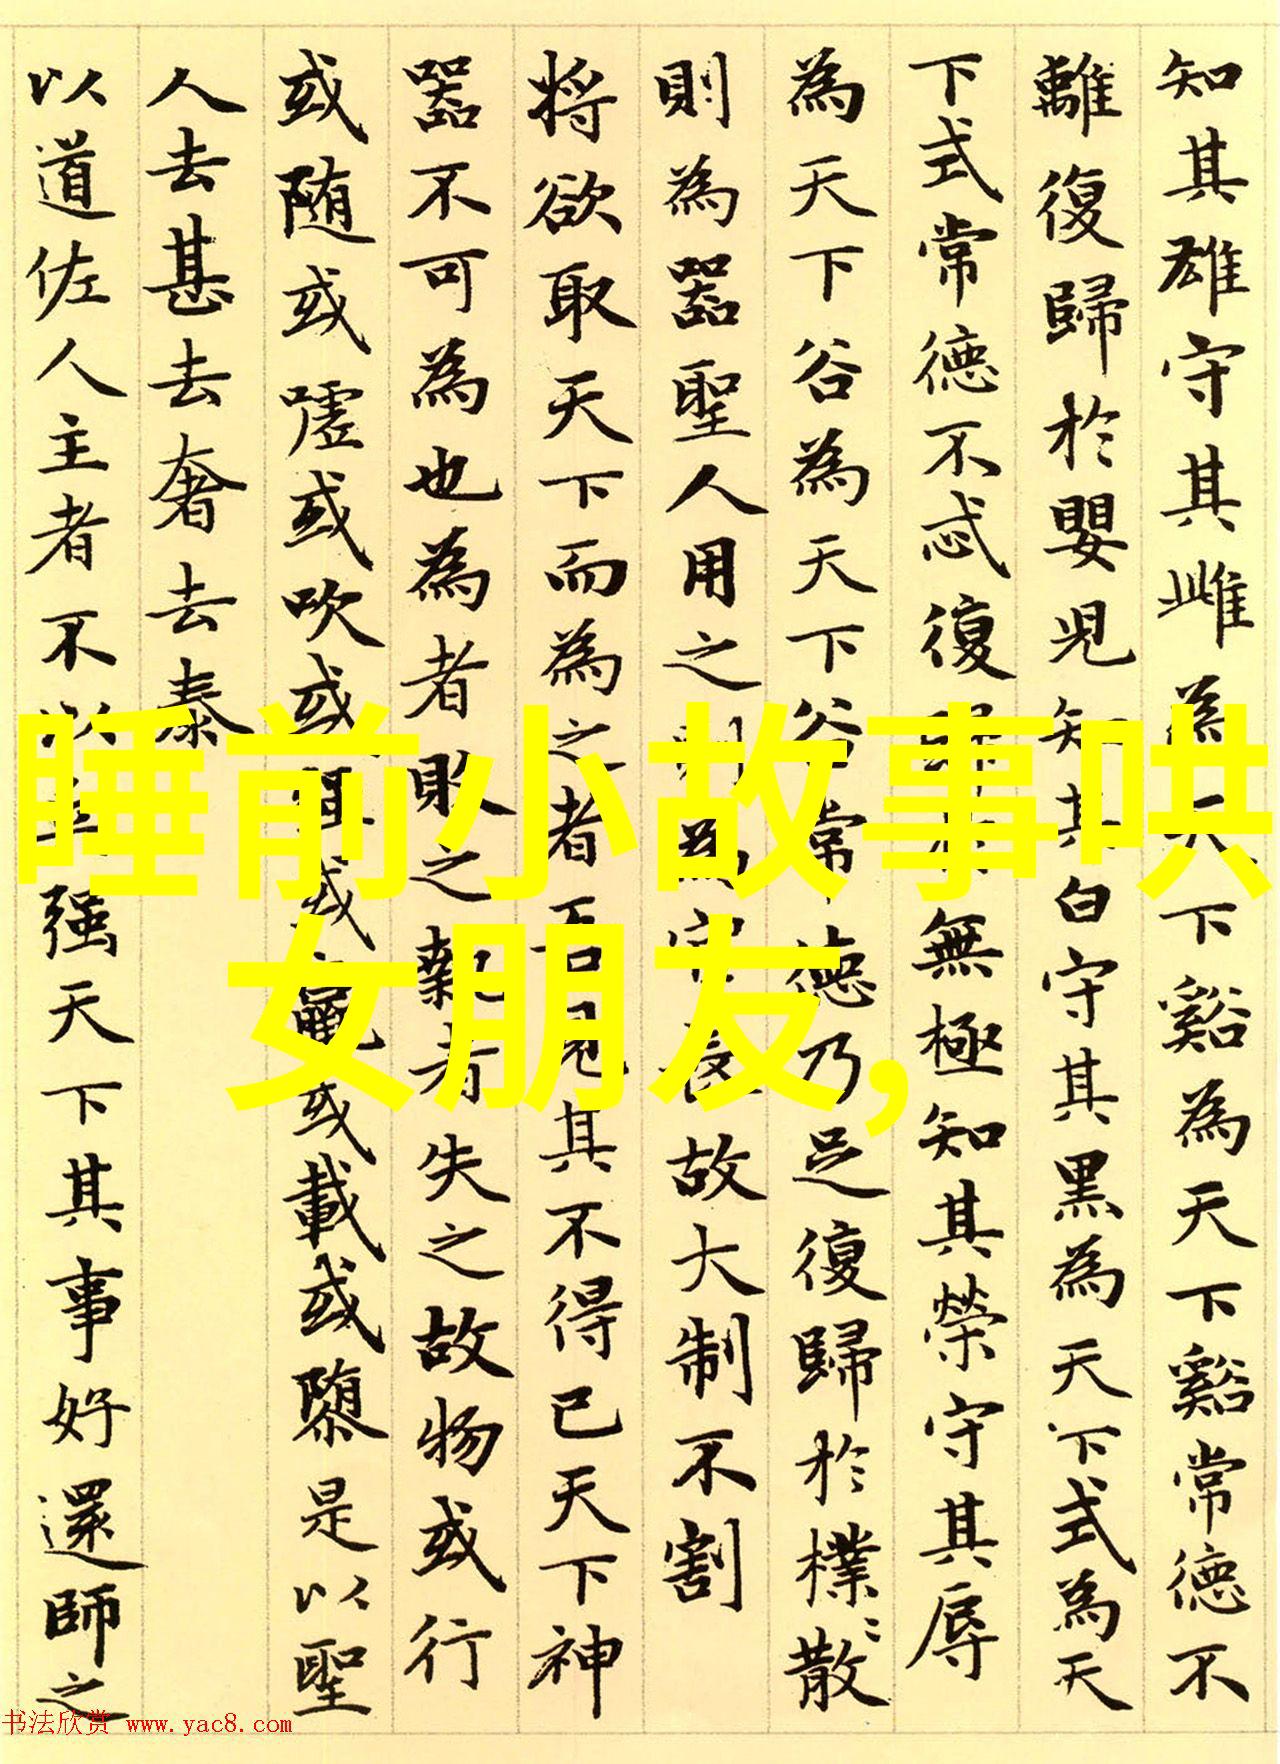 知其雄守其雌為天下谿為天下谿常德不
離復歸於嬰児知其白守其黑為天下式為天
下式常德不忒復歸於無極知其榮守其辱
為天下谷為天下谷常德乃足復歸於樸〻散
則為器聖人用之則為官長故大制不割
将欲取天下而為之者吾見其不得已天下神
器不可為也為者敗之執者失之故物或行
或随或嘘或吹或强或羸或載或隳是以聖
人去甚去奢去泰
以道佐人主者不以兵强天下其事好還師之
睡前小故事哄
女朋友,
书法欣赏 www.yac8.com